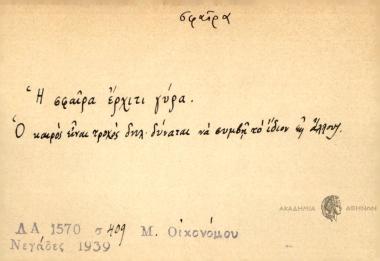 σφαῖρα
Ἡ σφαῖρα ἔρχιτι γύρα.
Ὁ καιρὸς εἶναι τροχὸς δηλ. δύναται νὰ συμβῇ τὸ ἴδιον εἰς ἄλλους.
ΑΚΑΔΗΜΙΑ ΑΘΗΝΩΝ
ΛΑ 1570 σ 409 Μ. Οἰκονόμου
Νεγάδες 1939